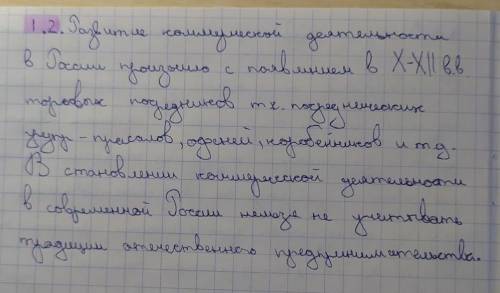 1.2. Развитие коммерческой деятельности
в России произошло с появлением в X-XII в.в
торовых посредников т.к. посреднических
услуг - прасолов, офеней, коробейников и т.д.
В становлении коммерческой деятельности
в современной России неможе не учитывать
традиции отечественного предпринимательства.